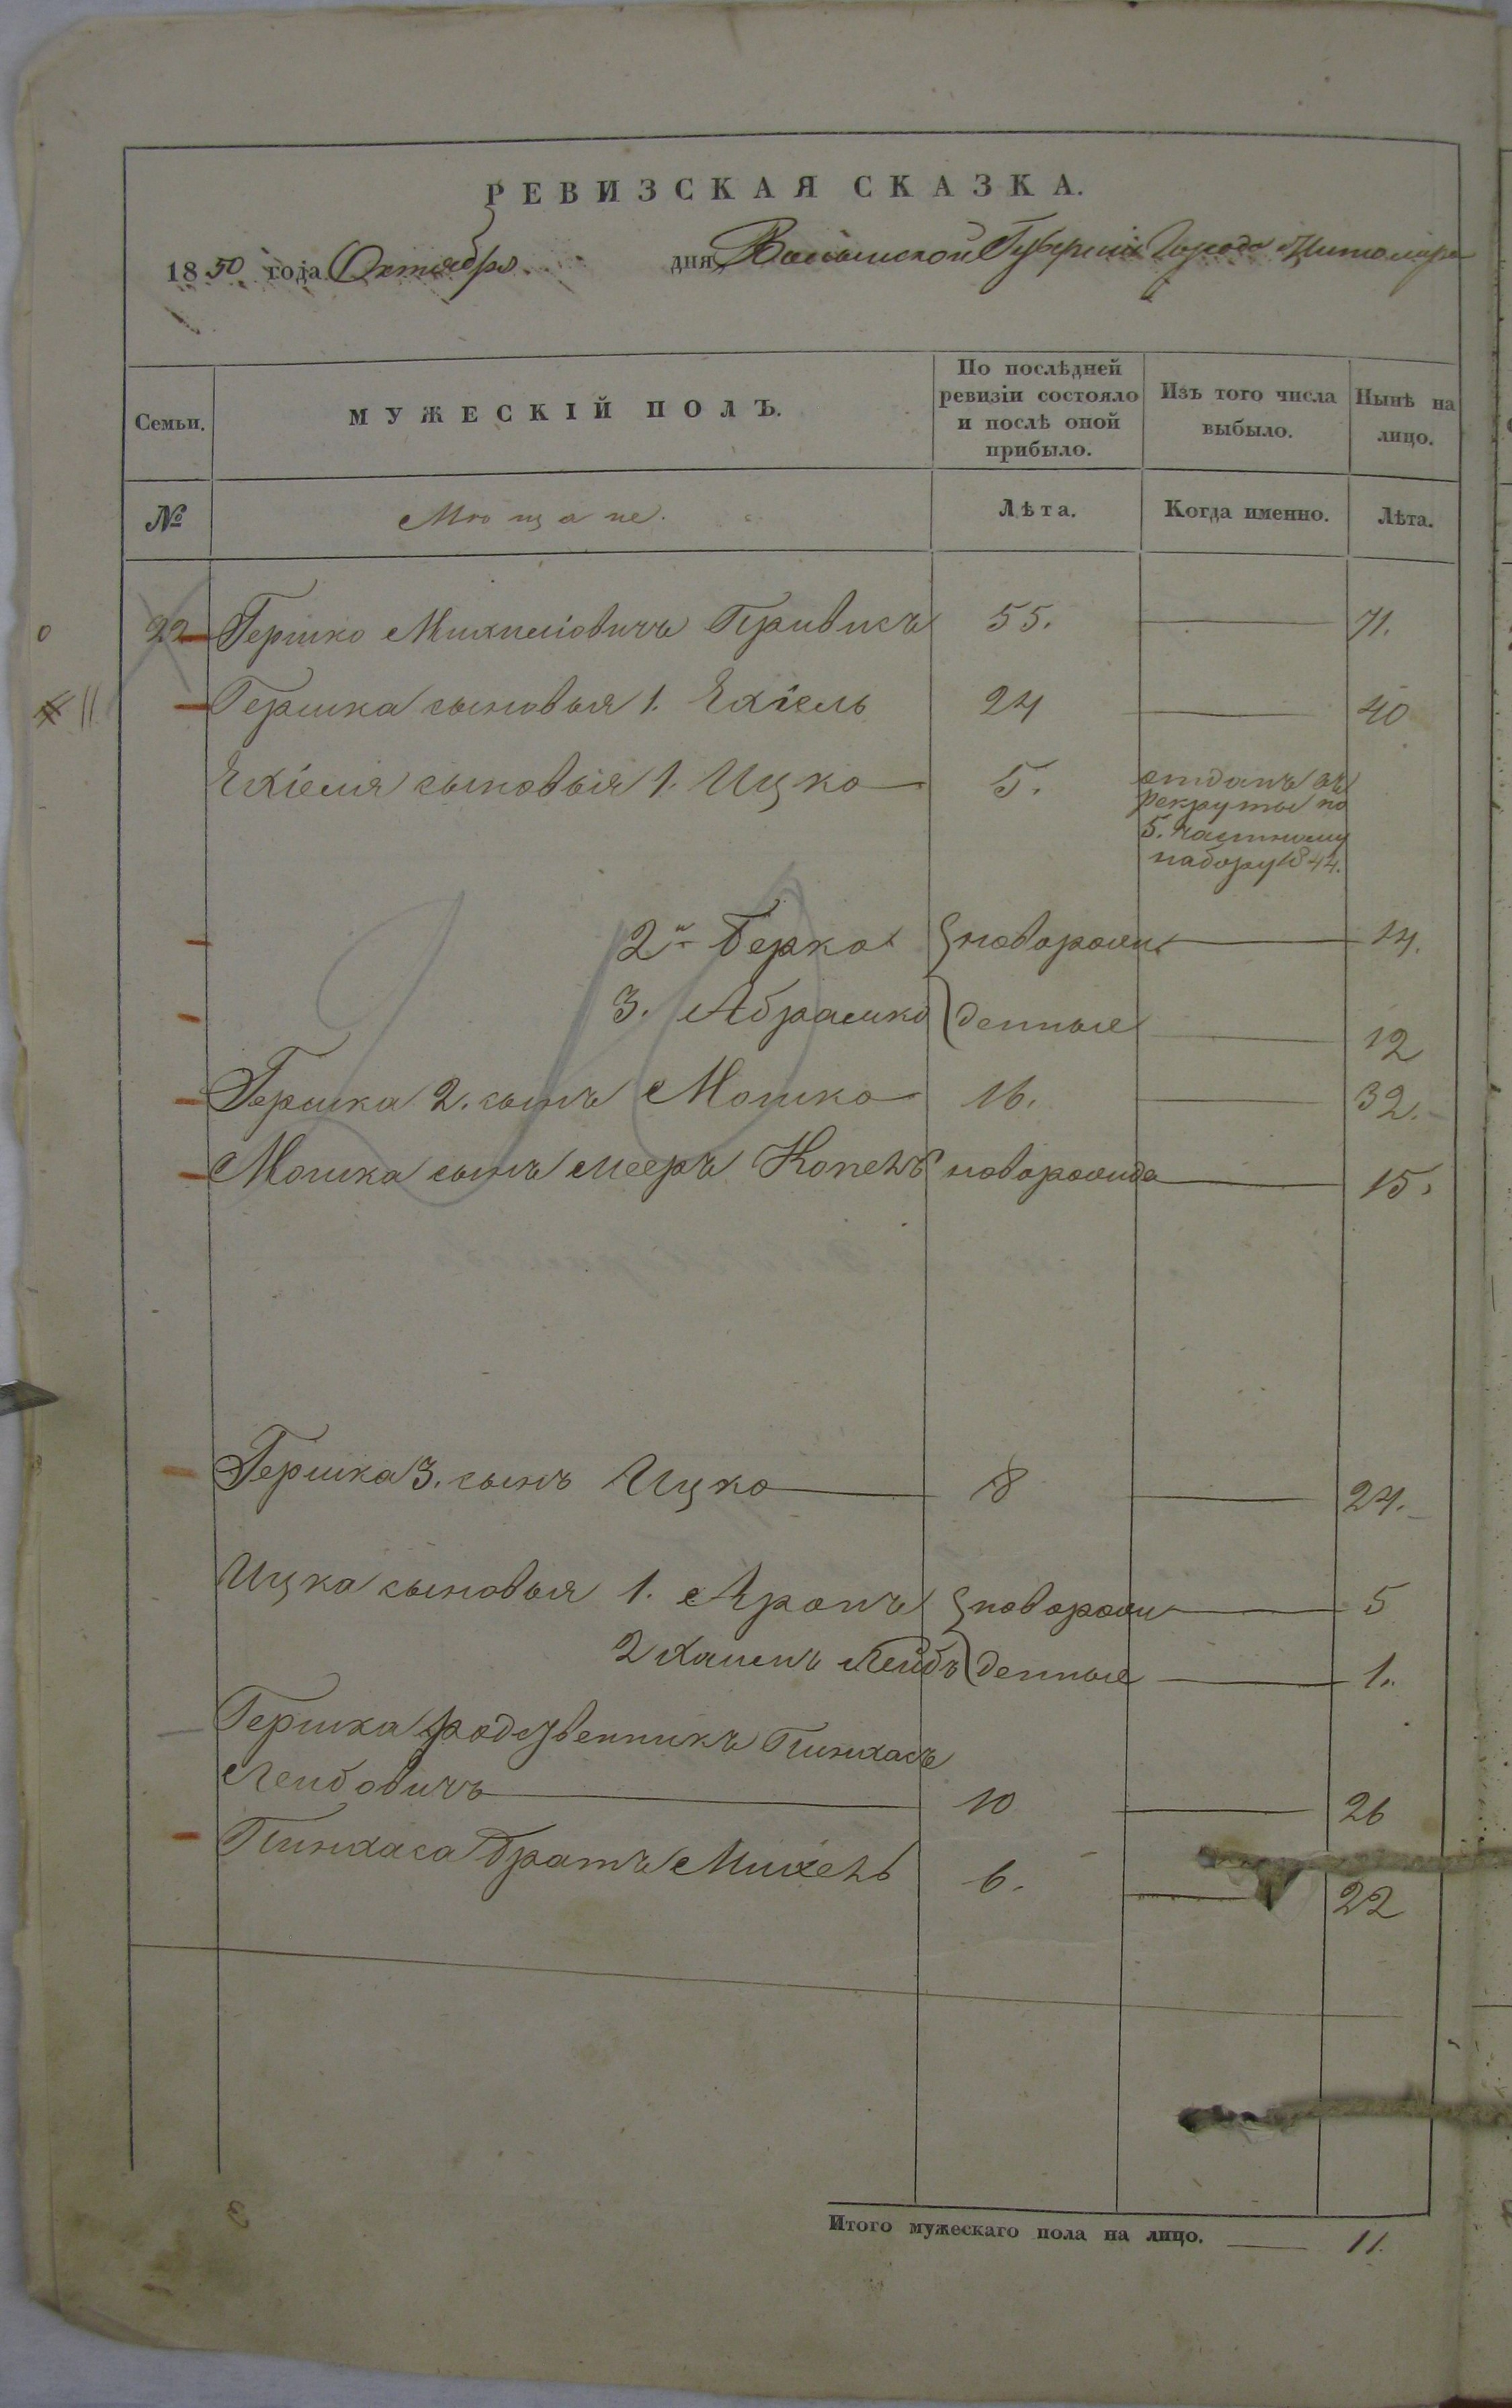 РЕВИЗСКАЯ СКАЗКА.
1850 года Октября дня Волынской Губерніи Города Житомира
Семьи. МУЖЕСКІЙ ПОЛЪ. По послѣдней ревизіи состояло и послѣ оной прибыло. Изъ того числа выбыло. Нынѣ на лицо.
№ Мѣщане. Лѣта. Когда именно. Лѣта.
22 Гершко Михеліовичъ 55. 71.
11
Гершка сыновья 1. Ехіель 24 40
Ехіеля сыновья 1. Ицко 5. отданъ въ рекруты по 5. частному набору 1844.
2й Берко новорож 14.
3. Абрамко денные 12
Гершка 2. сынъ Мошко 16. 32.
Мошка сынъ Мееръ Копель новорожде 15.
Гершка 3. сынъ Ицко 8 24.
Ицка сыновья 1. Аронъ новорож 5
2 Хаимъ Лейбъ денные 1.
Гершка родственникъ Пинхасъ
Лейбовичъ 10 26
Пинхаса братъ Михель 6. 22
Итого мужескаго пола на лицо. 11.